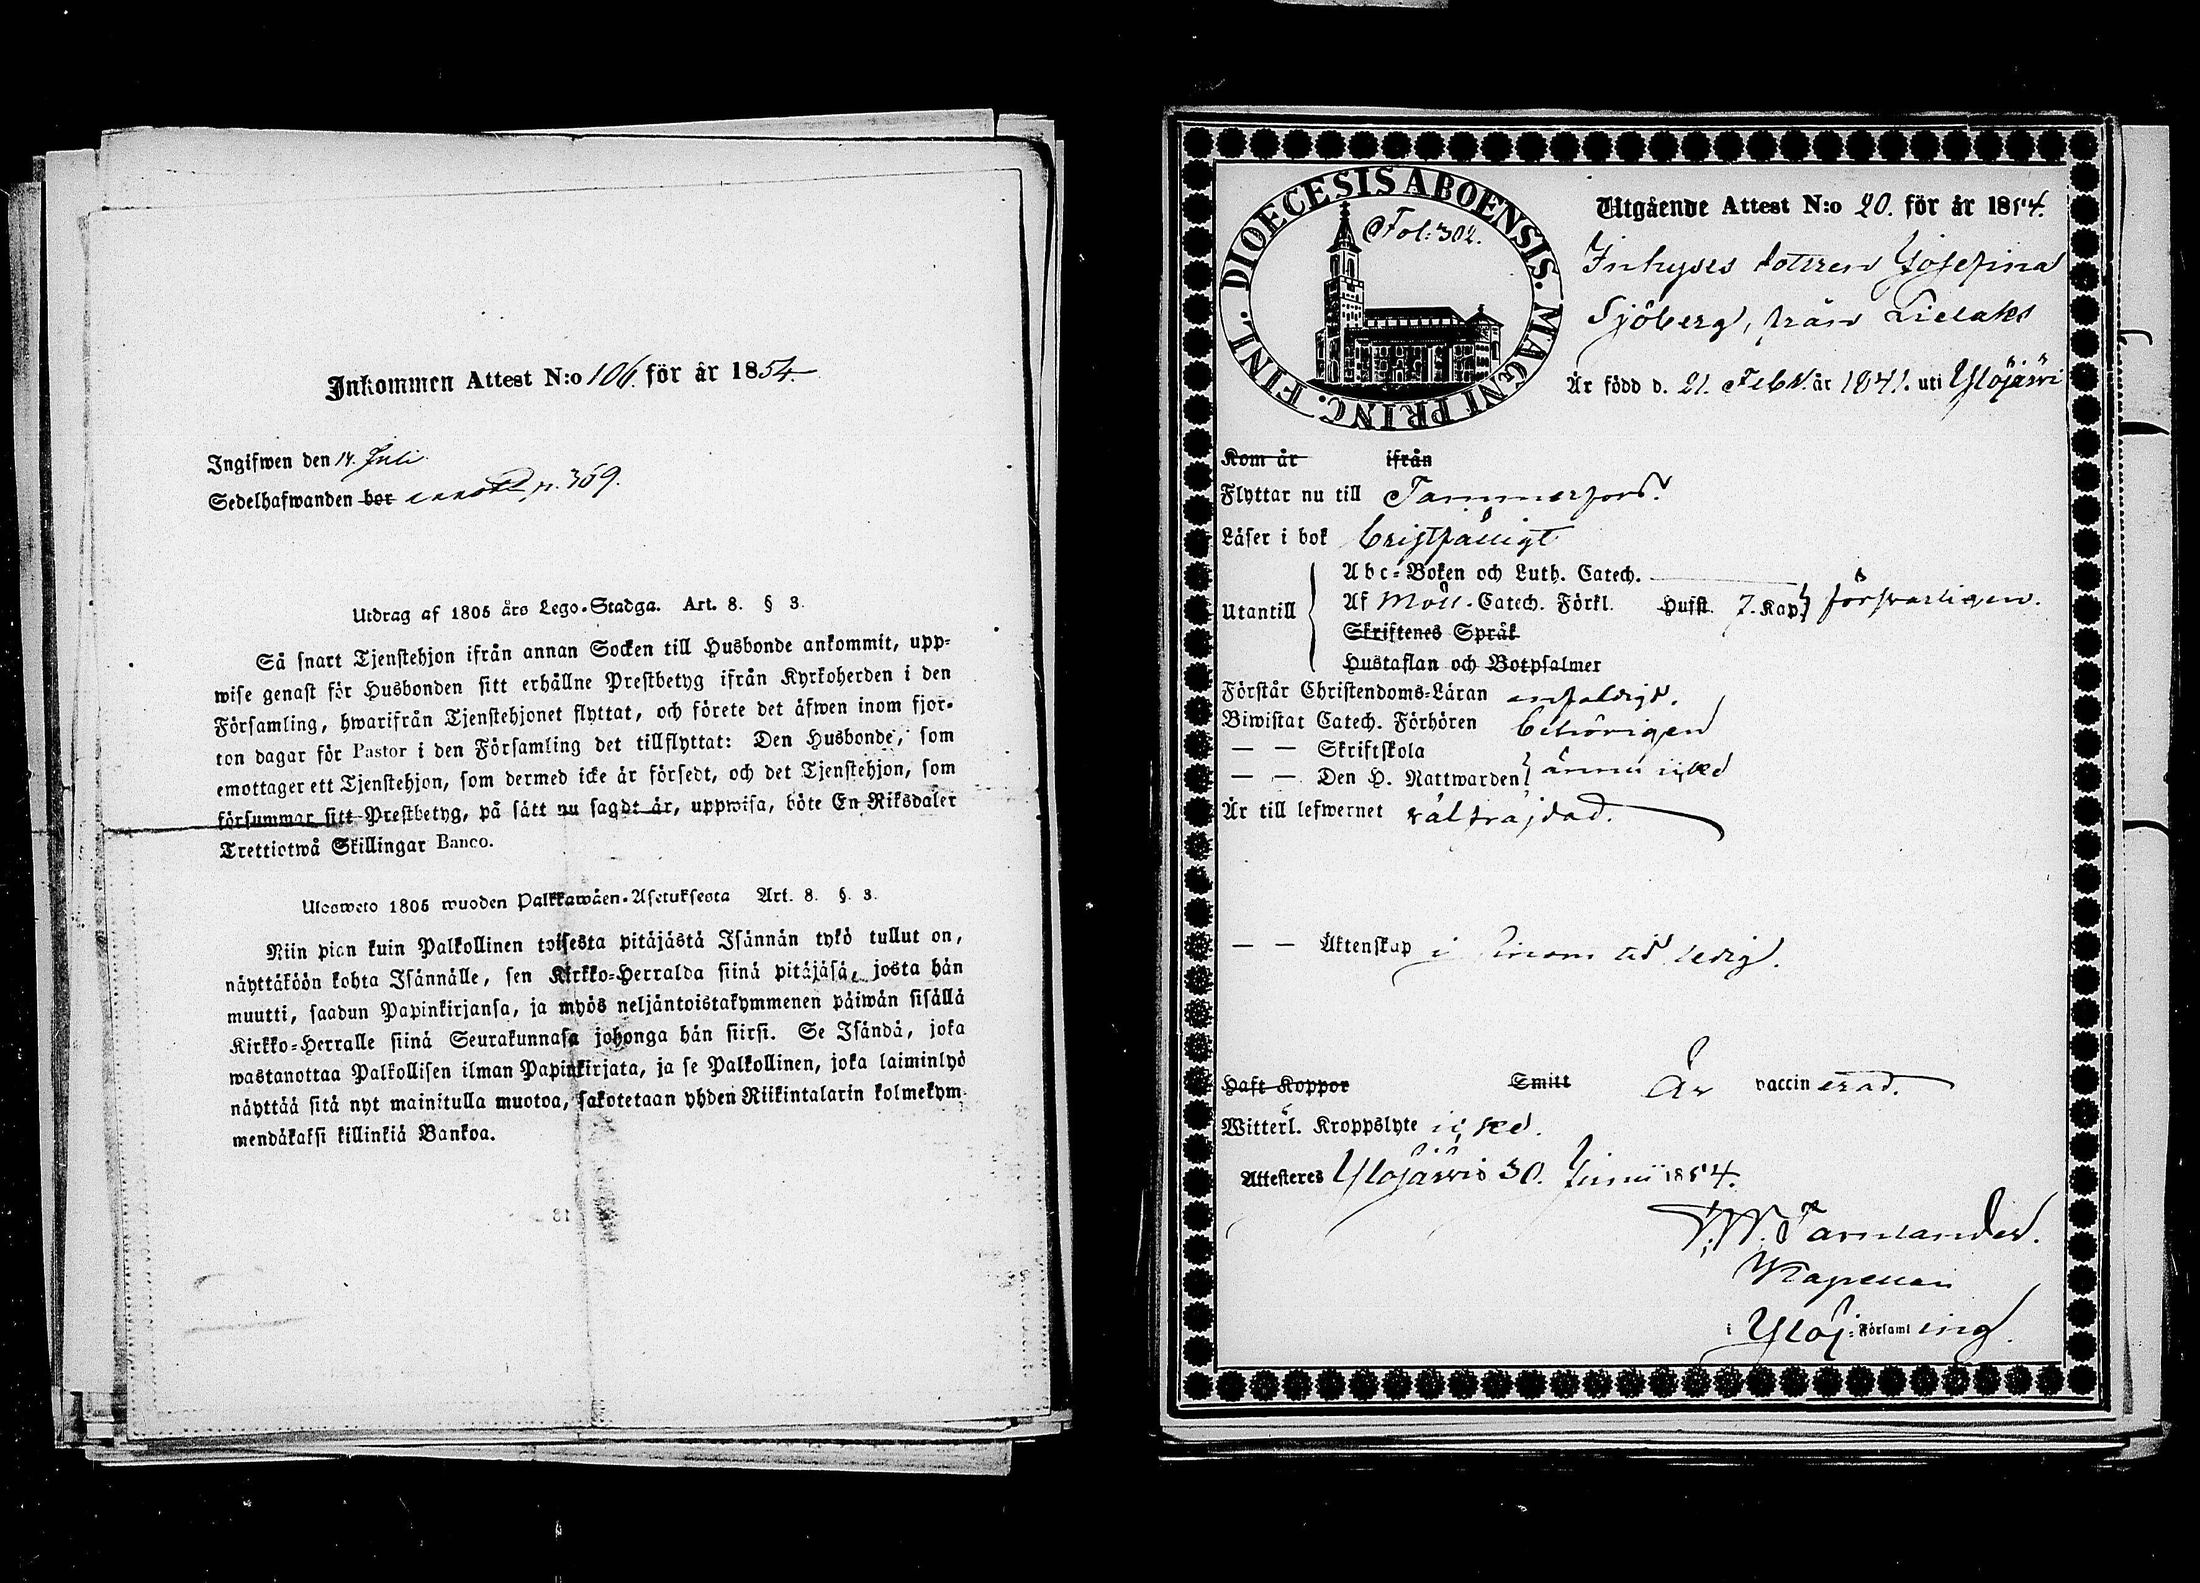 Inkommen Attest N:o 106. för år 1854.
Ingifwen den 14. Juli
Sedelhafwanden bor annot. p. 369.
Utdrag af 1805 års Lego-Stadga. Art. 8. § 3.
Så snart Tjenstehjon ifrån annan Socken till Husbonde ankommit, upp-
wise genast för Husbonden sitt erhållne Prestbetyg ifrån Kyrkoherden i den
Församling, hwarifrån Tjenstehjonet flyttat, och förete det äfwen inom fjor-
ton dagar för Pastor i den Församling det tillflyttat: Den Husbonde, som
emottager ett Tjenstehjon, som dermed icke är försedt, och det Tjenstehjon, som
försummar sitt Prestbetyg, på sätt nu sagdt är, uppwisa, böte En Riksdaler
Trettiotwå Skillingar Banco.
Ulosweto 1805 wuoden Palkkawäen-Asetuksesta Art. 8. §. 3.
Niin pian kuin Palkollinen toisesta pitäjästä Isännän tykö tullut on,
näyttäköön kohta Isännälle, sen Kirkko-Herralda siinä pitäjäsä, josta hän
muutti, saadun Papinkirjansa, ja myös neljäntoistakymmenen päiwän sisällä
Kirkko-Herralle siinä Seurakunnasa johonga hän siirsi. Se Isändä, joka
wastanottaa Palkollisen ilman Papinkirjata, ja se Palkollinen, joka laiminlyö
näyttää sitä nyt mainitulla muotoa, sakotetaan yhden Riikintalarin kolmekym-
mendäkaksi killinkiä Bankoa.
DIOECESIS ABOENSIS. MAGNI PRINC. FINL.
Fol: 302.
Utgående Attest N:o 20. för år 1854.
Inhyses dottren Josefina
Sjöberg, från Lielaks
Är född d. 21. Febr. år 1841. uti Ylöjärvi
Kom år ifrån
Flyttar nu till Tammerfors.
Läser i bok bristfälligt
Utantill
Abc-Boken och Luth. Catech.
Af Möll. Catech. Förkl. Hufst. 7. Kap. försvarligen.
Skriftenes Språk
Hustaflan och Botpsalmer
Förstår Christendoms-Läran enfaldigt.
Biwistat Catech. Förhören behörigen
— — Skriftskola
— — Den H. Nattwarden ännu icke
Är till lefwernet välfrejdad.
— — Äktenskap i ledig.
Haft Koppor Smitt Är vaccinerad.
Witterl. Kroppslyte icke.
Attesteres Ylöjärvi 30. Junii 1854.
Kapellan
i Ylöj: Församling.